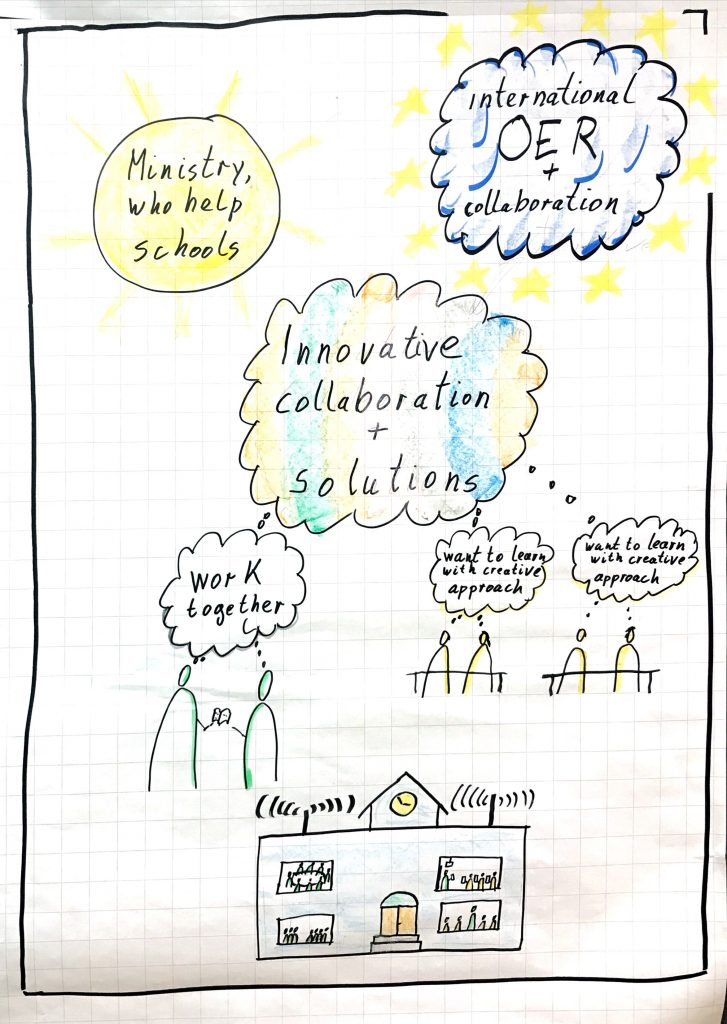 Ministry,
who help
schools
international
OER
+
collaboration
Innovative
collaboration
+
solutions
work
together
want to learn
with creative
approach
want to learn
with creative
approach